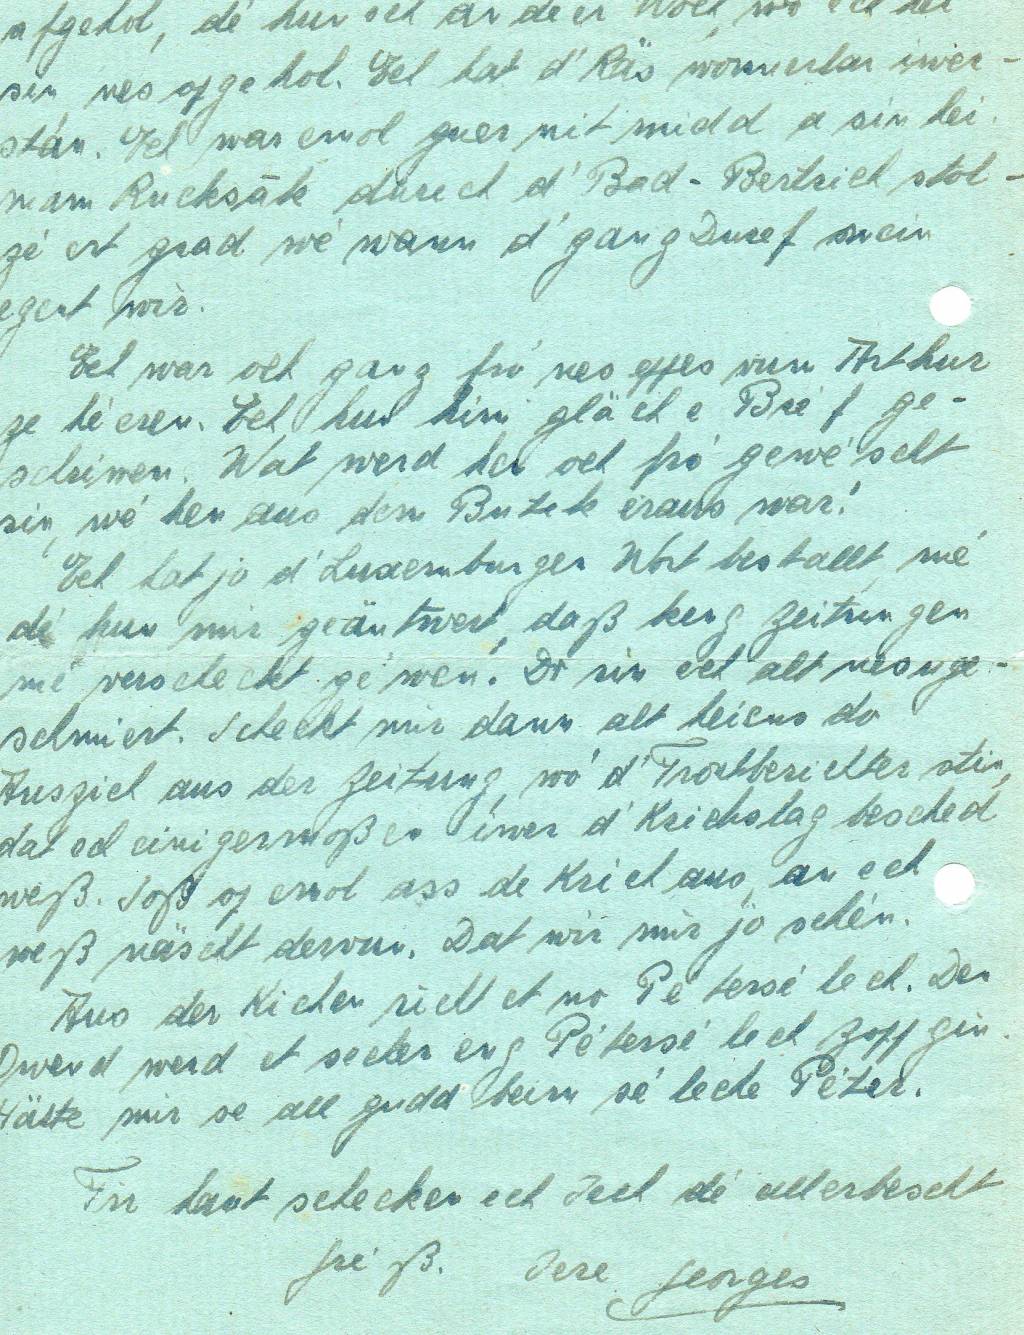 afgehol, dé hun ech an deer
sin, nes ofgehol. Ech hat d'Räs wonnerbar iwer-
stán. Ech war emol guer nit midd a sin hei
mam Rucksäk duerch d'Bad-Bertrich stol-
zé ert grad wé wann d'gang Duref mein
egent wir.
Ech war och ganz fro' nes eppes vum Arthur
ze hé eren. Ech hun him gläich e Bréf ge-
schriwen. Wat werd hen och fro' gewé'scht
sin, wé hen aus dem Buttek eraus war!
Ech hat jo d'Luxemburger Wort bestallt, mé
dé hun mir geäntwert, daß keng Zeitungen
mé verscheckt gé wen. Do sin ech alt nes uge-
schmiert. Scheckt mir dann alt heiens do
Auszich aus der Zeitung, wo' d'Frontberichter stin,
dat ech einigermoßen iwer d'Krichslag besched
weß. Soß of emol ass de Krich aus, an ech
weß näscht dervun. Dat wir mir jo schén.
Aus der Kichen richt et no Pé tersé lech. Den
Owend werd et secher eng Pétersé lech Zopp gin.
Häste mir se all gudd beim sé leche Péter.
Fir haut schecken ech Iech dé allerbescht
Gré ß. Iere Georges